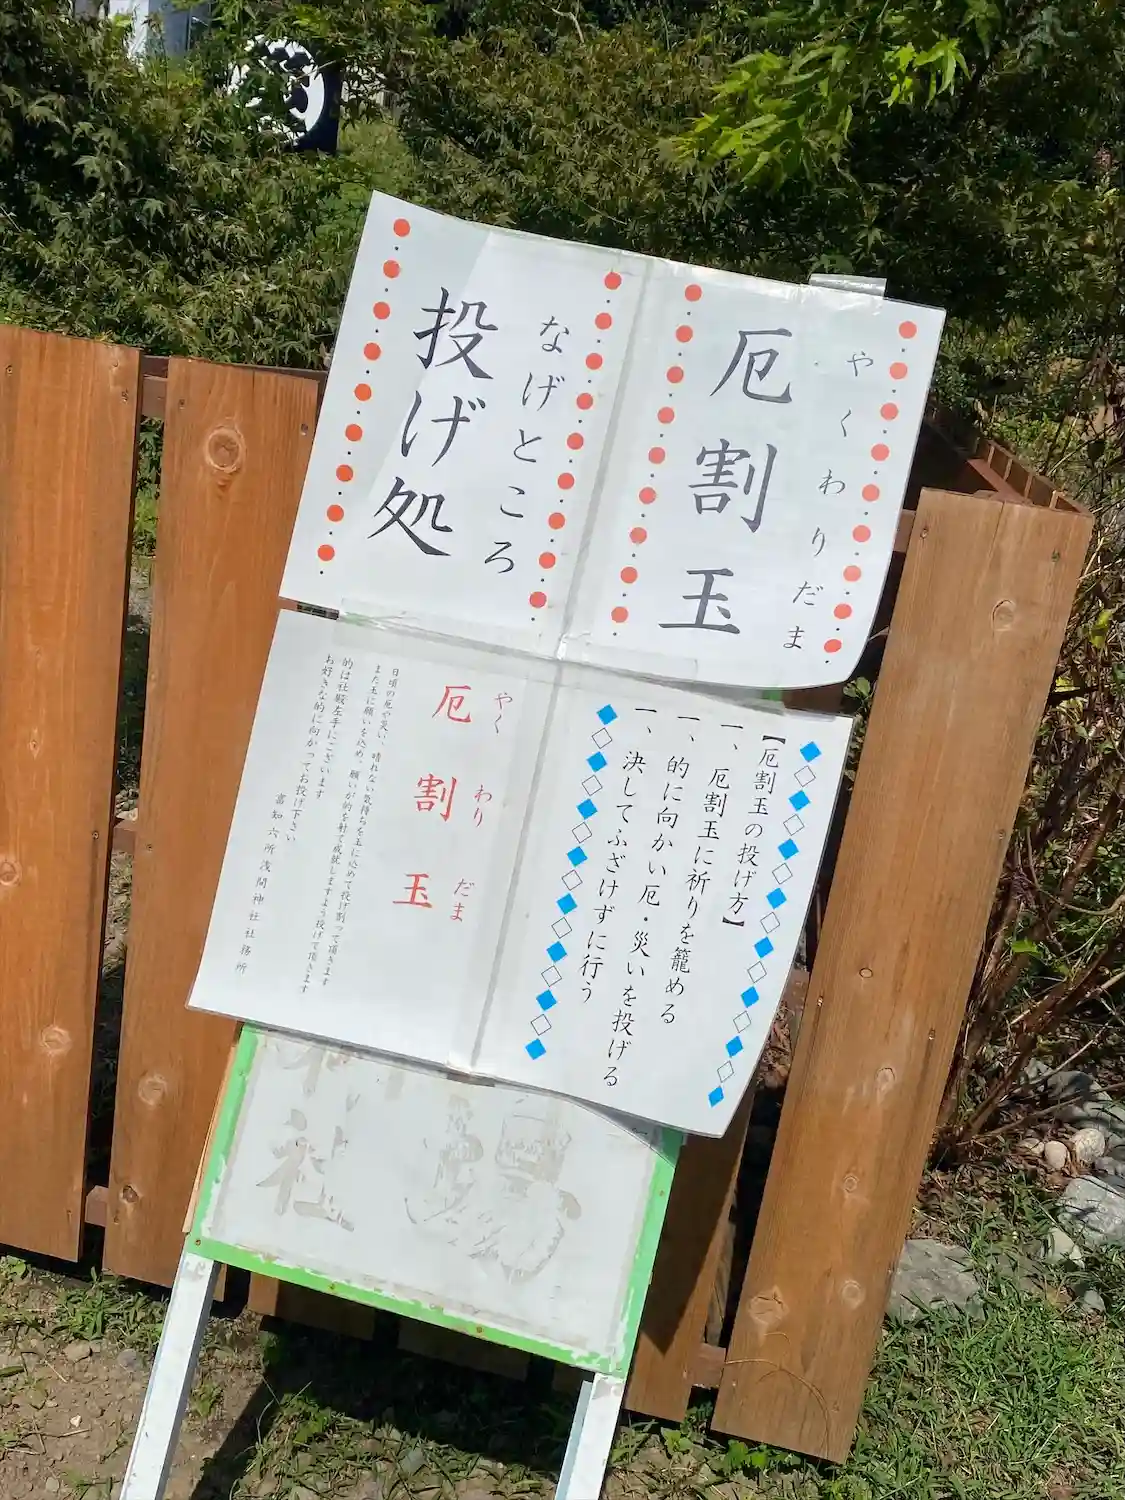 厄割玉
やくわりだま
投げ処
なげところ
【厄割玉の投げ方】
一、厄割玉に祈りを籠める
一、的に向かい厄・災いを投げる
一、決してふざけずに行う
厄割玉
やくわりだま
日頃の厄や災い、晴れない気持ちを玉に込めて投げ割って頂きます
また玉に願いを込め、願いが的を射て成就しますよう投げて頂きます
的は社殿左手にございます
お好きな的に向かってお投げ下さい
富知六所浅間神社社務所
社